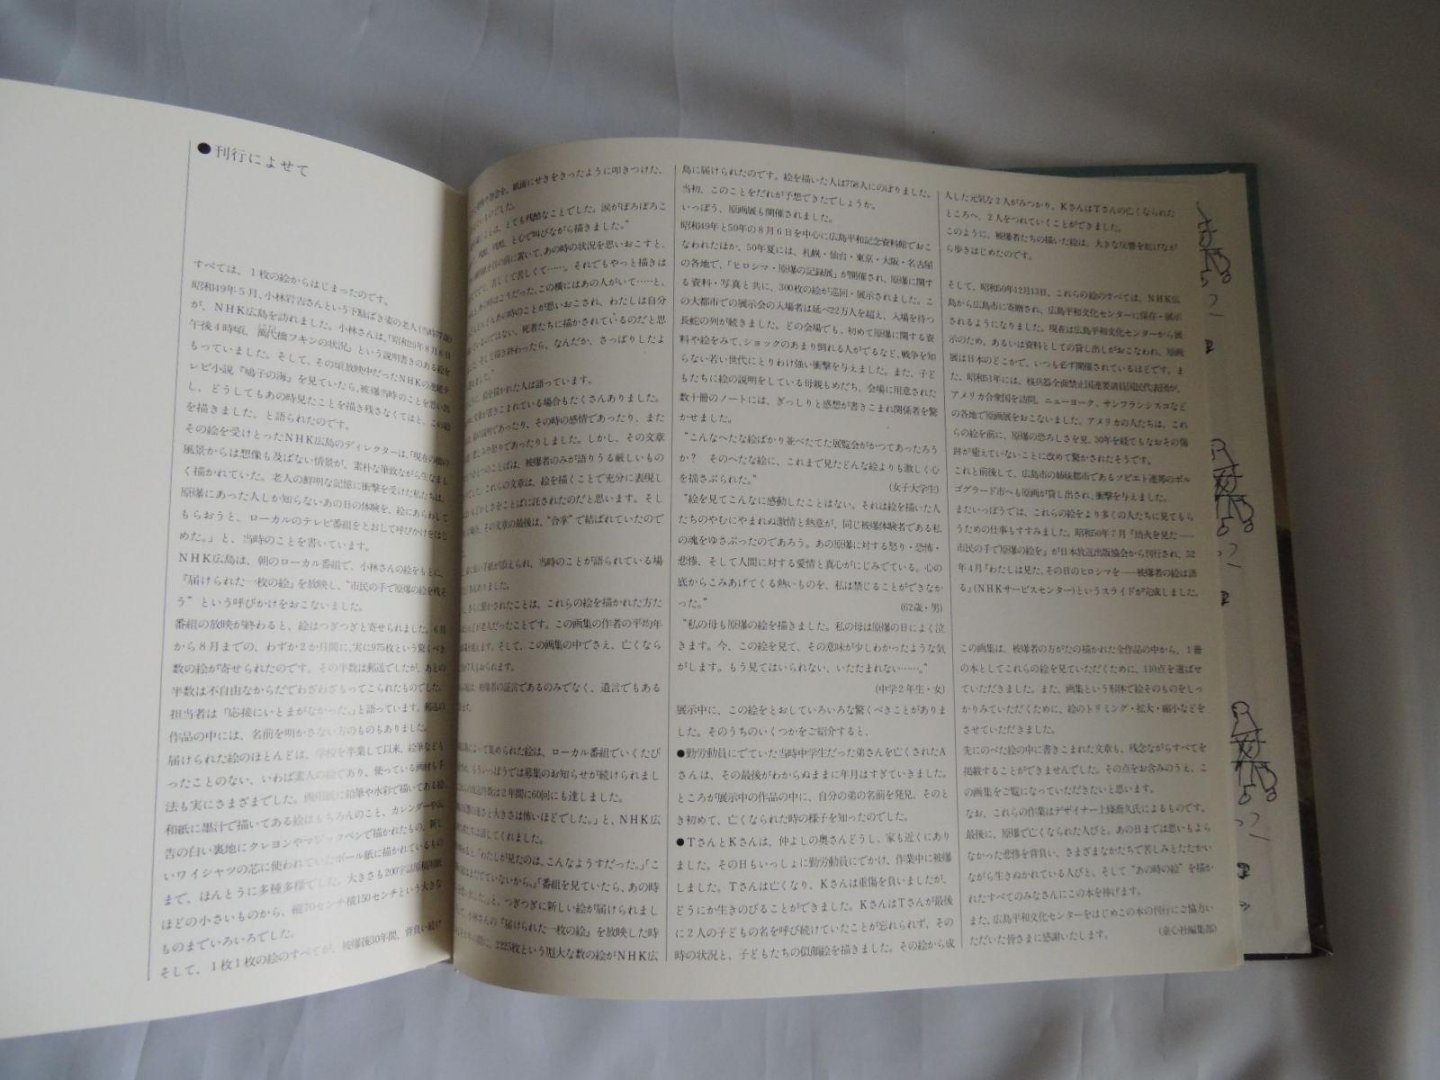 ●刊行によせて
すべては、1枚の絵からはじまったのです。
昭和49年5月、小林岩吉さんという下駄ばき姿の老人(当時77歳)
が、NHK広島を訪れました。小林さんは、「昭和20年8月6日
午後4時頃、萬代橋フキンの状況」という説明書きのある絵を
もっていました。そして、その頃放映中だったNHKの連続テ
レビ小説『鳩子の海』を見ていたら、被爆当時のことを思い出
し、どうしてもあの時見たことを描き残さなくてはと、この絵
を描きました、と語られたのです。
その絵を受けとったNHK広島のディレクターは、「現在の橋の
風景からは想像も及ばない情景が、素朴な筆致ながら生なまし
く描かれていた。老人の鮮明な記憶に衝撃を受けた私たちは、
原爆にあった人しか知らないあの日の体験を、絵にあらわして
もらおうと、ローカルのテレビ番組をとおして呼びかけをはじ
めた。」と、当時のことを書いています。
NHK広島は、朝のローカル番組で、小林さんの絵をもとに、
『届けられた一枚の絵』を放映し、“市民の手で原爆の絵を残そ
う”という呼びかけをおこないました。
番組の放映が終わると、絵はつぎつぎと寄せられました。6月
から8月までの、わずか2か月間に、実に975枚という驚くべき
数の絵が寄せられたのです。その半数は郵送でしたが、あとの
半数は不自由なからだでわざわざもってこられたものでした。
担当者は「応接にいとまがなかった。」と語っています。郵送の
作品の中には、名前を明かさない方のものもありました。
届けられた絵のほとんどは、学校を卒業して以来、絵筆などもっ
たことのない、いわば素人の絵であり、使っている画材も手
法も実にさまざまでした。画用紙に鉛筆や水彩で描いてある絵
和紙に墨汁で描いてある絵はもちろんのこと、カレンダーや広
告の白い裏地にクレヨンやマジックペンで描かれたもの、新し
いワイシャツの芯に使われていたボール紙に描かれているもの
まで、ほんとうに多種多様でした。大きさも200字詰原稿用紙
ほどの小さいものから、縦70センチ横150センチという大きな
ものまでいろいろでした。
そして、1枚1枚の絵のすべてが、被爆後30年間、背負い続け
紙面にせきをきったように叩きつけた、
ものでした。
とても残酷なことでした。涙がぽろぽろこ
と心で叫びながら描きました。”
前に置いて、あの時の状況を思いおこすと、
苦しくて哀しくて……。それでもやっと描きは
こうだった、この横にはあの人がいて……と、
あの時のことが思いおこされ、わたしは自分
のではない、死者たちに描かされているのだと思
そして描き終わったら、なんだか、さっぱりしたよ
絵を描かれた人は語っています。
書きこまれている場合もたくさんありました。
その時の感情であったり、また
怒りであったりしました。しかし、その文章
ことばは、被爆者のみが語りうる厳しいもの
これらの文章は、絵を描くことで充分に表現し
ことばに託されたのだと思います。そし
その文章の最後は、“合掌”で結ばれていたので
手紙が添えられ、当時のことが語られている場
ありました。
驚かされたことは、これらの絵を描かれた方た
老人だったことです。この画集の作者の平均年
超えます。そして、この画集の中でさえ、亡くなら
おられます。
被爆者の証言であるのみでなく、遺言でもある
よって集められた絵は、ローカル番組でいくたび
もういっぽうでは募集のお知らせが続けられまし
放送件数は2年間に60回にも達しました。
大きさは怖いほどでした。」と、NHK広
は話してくれました。
「わたしが見たのは、こんなようすだった。」「こ
まだでていないから。」「番組を見ていたら、あの時
と、つぎつぎに新しい絵が届けられまし
小林さんの『届けられた一枚の絵』を放映した時
間に、2225枚という厖大な数の絵がNHK広
島に届けられたのです。絵を描いた人は758人にのぼりました。
当初、このことをだれが予想できたでしょうか。
いっぽう、原画展も開催されました。
昭和49年と50年の8月6日を中心に広島平和記念資料館でおこ
なわれたほか、50年夏には、札幌・仙台・東京・大阪・名古屋
の各地で、「ヒロシマ・原爆の記録展」が開催され、原爆に関す
る資料・写真と共に、300枚の絵が巡回・展示されました。こ
の大都市での展示会の入場者は延べ22万人を超え、入場を待つ
長蛇の列が続きました。どの会場でも、初めて原爆に関する資
料や絵をみて、ショックのあまり倒れる人がでるなど、戦争を知
らない若い世代にとりわけ強い衝撃を与えました。また、子ど
もたちに絵の説明をしている母親もめだち、会場に用意された
数十冊のノートには、ぎっしりと感想が書きこまれ関係者を驚
かせました。
“こんなへたな絵ばかり並べたてた展覧会がかつてあったろう
か？　そのへたな絵に、これまで見たどんな絵よりも激しく心
を揺さぶられた。”
(女子大学生)
“絵を見てこんなに感動したことはない。それは絵を描いた人
たちのやむにやまれぬ激情と熱意が、同じ被爆体験者である私
の魂をゆさぶったのであろう。あの原爆に対する怒り・恐怖・
悲惨、そして人間に対する愛情と真心がにじみでている。心の
底からこみあげてくる熱いものを、私は禁じることができなか
った。”
(62歳・男)
“私の母も原爆の絵を描きました。私の母は原爆の日によく泣
きます。今、この絵を見て、その意味が少しわかったような気
がします。もう見てはいられない、いたたまれない……。”
(中学2年生・女)
展示中に、この絵をとおしていろいろな驚くべきことがありま
した。そのうちのいくつかをご紹介すると、
●勤労動員にでていた当時中学生だった弟さんを亡くされたA
さんは、その最後がわからぬままに年月はすぎていきました。
ところが展示中の作品の中に、自分の弟の名前を発見、そのと
き初めて、亡くなられた時の様子を知ったのでした。
●TさんとKさんは、仲よしの奥さんどうし、家も近くにあり
ました。その日もいっしょに勤労動員にでかけ、作業中に被爆
しました。Tさんは亡くなり、Kさんは重傷を負いましたが、
どうにか生きのびることができました。KさんはTさんが最後
に2人の子どもの名を呼び続けていたことが忘れられず、その
時の状況と、子どもたちの似顔絵を描きました。その絵から成
人した元気な2人がみつかり、KさんはTさんの亡くなられた
ところへ、2人をつれていくことができました。
このように、被爆者たちの描いた絵は、大きな反響を拡げなが
ら歩きはじめたのです。
そして、昭和50年12月13日、これらの絵のすべては、NHK広
島から広島市に寄贈され、広島平和文化センターに保存・展示
されるようになりました。現在は広島平和文化センターから展
示のため、あるいは資料としての貸し出しがおこなわれ、原画
展は日本のどこかで、いつも必ず開催されているほどです。ま
た、昭和51年には、核兵器全面禁止国連要請国民代表団が、
アメリカ合衆国を訪問、ニューヨーク、サンフランシスコなど
の各地で原画展をおこないました。アメリカの人たちは、これ
らの絵を前に、原爆の恐ろしさを見、30年を経てもなおその傷
跡が癒えていないことに改めて驚かされたそうです。
これと前後して、広島市の姉妹都市であるソビエト連邦のボル
ゴグラード市へも原画が貸し出され、衝撃を与えました。
またいっぽうでは、これらの絵をより多くの人たちに見てもら
うための仕事もすすみました。昭和50年7月『劫火を見た——
市民の手で原爆の絵を』が日本放送出版協会から刊行され、52
年4月『わたしは見た、その日のヒロシマを——被爆者の絵は語
る』(NHKサービスセンター)というスライドが完成しました。
この画集は、被爆者の方がたの描かれた全作品の中から、1冊
の本としてこれらの絵を見ていただくために、110点を選ばせ
ていただきました。また、画集という形体で絵そのものをしっ
かりみていただくために、絵のトリミング・拡大・縮小などを
させていただきました。
先にのべた絵の中に書きこまれた文章も、残念ながらすべてを
掲載することができませんでした。その点をお含みのうえ、こ
の画集をご覧になっていただきたいと思います。
なお、これらの作業はデザイナー上條喬久氏によるものです。
最後に、原爆で亡くなられた人びと、あの日までは思いもよら
なかった悲惨を背負い、さまざまなかたちで苦しみとたたかい
ながら生きぬかれている人びと、そして“あの時の絵”を描か
れたすべてのみなさんにこの本を捧げます。
また、広島平和文化センターをはじめこの本の刊行にご協力い
ただいた皆さまに感謝いたします。
(童心社編集部)